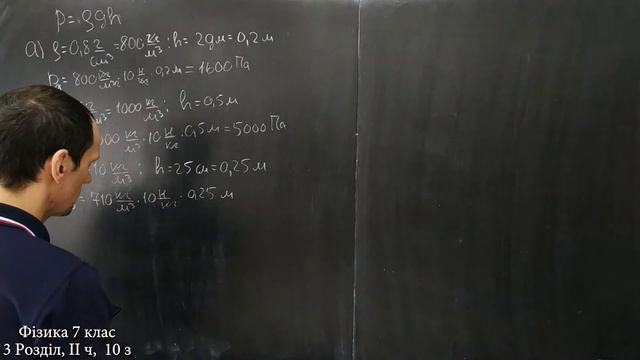 P = ρgh
а) ρ = 0,8 г/см³ = 800 кг/м³; h = 2дм = 0,2 м
P = 800 кг/м³ · 10 Н/кг · 0,2 м = 1600 Па
= 1000 кг/м³; h = 0,5 м
кг/м³ · 10 Н/кг · 0,5 м = 5000 Па
кг/м³; h = 25 см = 0,25 м
= 710 кг/м³ · 10 Н/кг · 0,25 м
Фізика 7 клас
3 Розділ, ІІ ч, 10 з